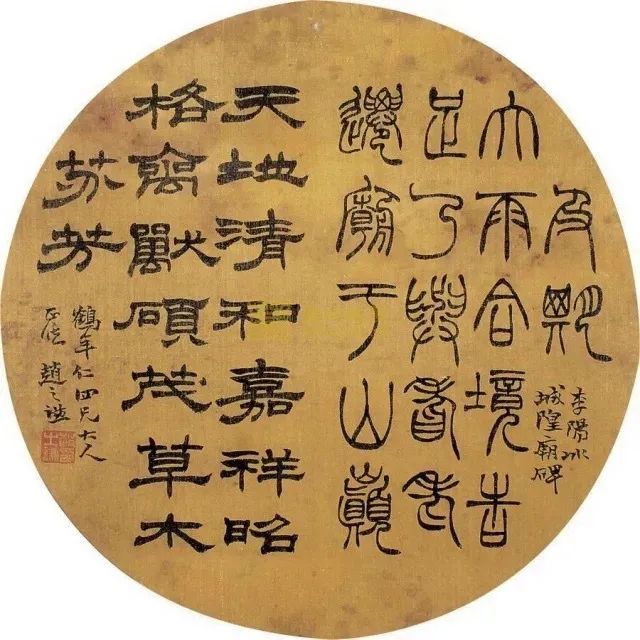 及期
大雨合境告
足乃與耆老
遷廟于山巔
李陽冰
城隍廟碑
天地清和嘉祥昭
格禽獸碩茂草木
芬芳
鶴年仁四兄大人
趙之謙